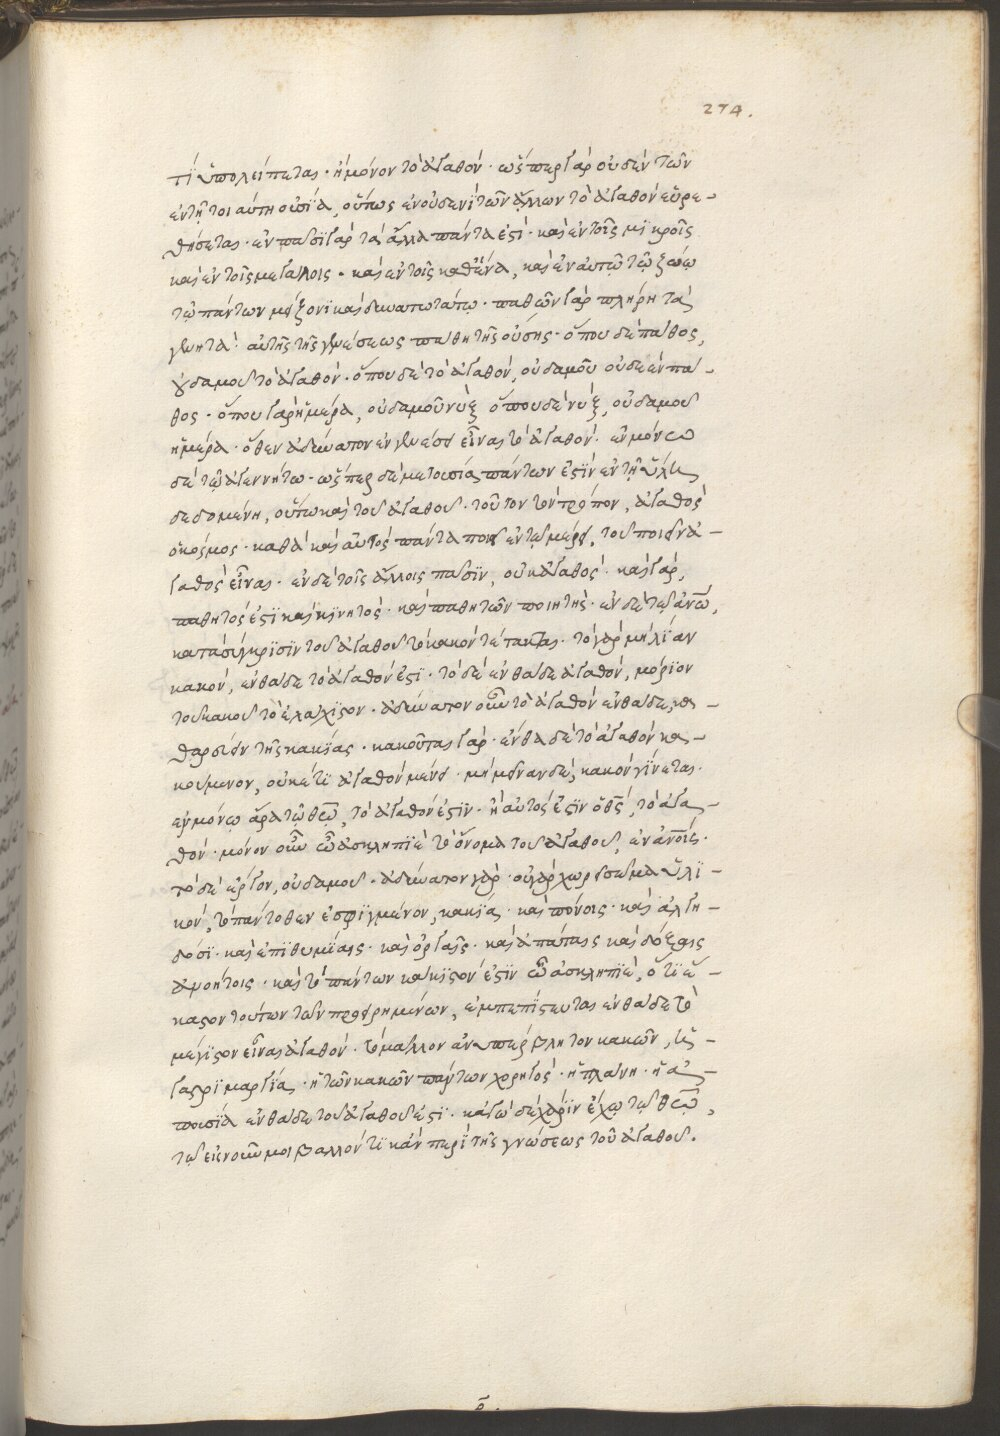 274.
τί ὑπολείπεται· ἢ μόνον τὸ ἀγαθόν· ὥσπερ γὰρ οὐδὲν τῶν
ἐν τῇ τοιαύτη οὐσία, οὕτως ἐν οὐδενὶ τῶν ἄλλων τὸ ἀγαθὸν εὑρε-
θήσεται· ἐν πᾶσι γὰρ τὰ ἄλλα πάντα ἐστί· καὶ ἐν τοῖς μικροῖς
καὶ ἐν τοῖς μεγάλοις· καὶ ἐν τοῖς καθἕνα, καὶ ἐν αὐτῷ τῷ ζώῳ
τῷ πάντων μείζονι καὶ δυνατωτάτῳ· παθῶν γὰρ πλήρη τὰ
γεννητά· αὐτῆς τῆς γενέσεως παθητῆς οὔσης· ὅπου δὲ πάθος,
οὐδαμοῦ τὸ ἀγαθόν· ὅπου δὲ τὸ ἀγαθόν, οὐδαμοῦ οὐδὲ ἓν πά-
θος· ὅπου γὰρ ἡμέρα, οὐδαμοῦ νὺξ ὅπου δὲ νύξ, οὐδαμοῦ
ἡμέρα· ὅθεν ἀδύνατον ἐν γενέσει εἶναι τὸ ἀγαθόν· ἐν μόνω
δὲ τῷ ἀγεννήτω· ὥσπερ δὲ μετουσία πάντων ἐστὶν ἐν τῇ ὕλη
δεδομένη, οὕτω καὶ τοῦ ἀγαθοῦ· τοῦτον τὸν τρόπον, ἀγαθὸς
ὁ κόσμος· καθὰ καὶ αὐτὸς πάντα ποιεῖ ἐν τῷ μέρει, τοῦ ποιεῖν ἀ-
γαθὸς εἶναι· ἐν δὲ τοῖς ἄλλοις πᾶσιν, οὐκ ἀγαθός· καὶ γὰρ,
παθητός ἐστι καὶ κινητός· καὶ παθητῶν ποιητής· ἐν δὲ τῷ ἀνῶ,
κατὰ σύγκρισιν τοῦ ἀγαθοῦ τὸ κακὸν τέτακται· τὸ γὰρ μὴ λίαν
κακόν, ἐνθάδε τὸ ἀγαθόν ἐστι· τὸ δὲ ἐνθάδε ἀγαθόν, μόριον
τοῦ κακοῦ τὸ ἐλάχιστον· ἀδύνατον οὖν τὸ ἀγαθὸν ἐνθάδε, κα-
θαρεύειν τῆς κακίας· κακοῦται γὰρ· ἐνθάδε τὸ ἀγαθὸν κα-
κούμενον, οὐκέτι ἀγαθὸν μένει· μὴ μεῖναν δέ, κακὸν γίνεται·
ἐν μόνῳ ἄρα τῷ θεῷ, τὸ ἀγαθόν ἐστιν· ἢ αὐτός ἐστιν ὁ θς, τὸ ἀγα-
θόν· μόνον οὖν ὦ ἀσκληπιὲ τὸ ὄνομα τοῦ ἀγαθοῦ, ἐν ἀνοις·
τὸ δὲ ἔργον, οὐδαμοῦ· ἀδύνατον γάρ· οὐ γὰρ χωρεῖ σῶμα ὑλι-
κόν, τὸ πάντοθεν ἐσφιγμένον, κακία· καὶ πόνοις· καὶ ἀλγη-
δόσι· καὶ ἐπιθυμίαις· καὶ ὀργαῖς· καὶ ἀπάταις καὶ δόξαις
ἀνοήτοις· καὶ τὸ πάντων κάκιστόν ἐστιν ὦ ἀσκληπιὲ, ὅτι ἕ-
καστον τούτων τῶν προειρημένων, ἐμπεπίστευται ἐνθάδε τὸ
μέγιστον εἶναι ἀγαθόν· τὸ μᾶλλον ἀνυπέρβλητον κακῶν, ἡ
γαστριμαργία· ἡ τῶν κακῶν πάντων χορηγός· ἡ πλάνη· ἡ ἀ-
πουσία ἐνθάδε τοῦ ἀγαθοῦ ἐστι· κἀγὼ δὲ χάριν ἔχω τῷ θεῷ,
τῷ εἰς νοῦν μοι βαλλόντι κἂν περὶ τῆς γνώσεως τοῦ ἀγαθοῦ.